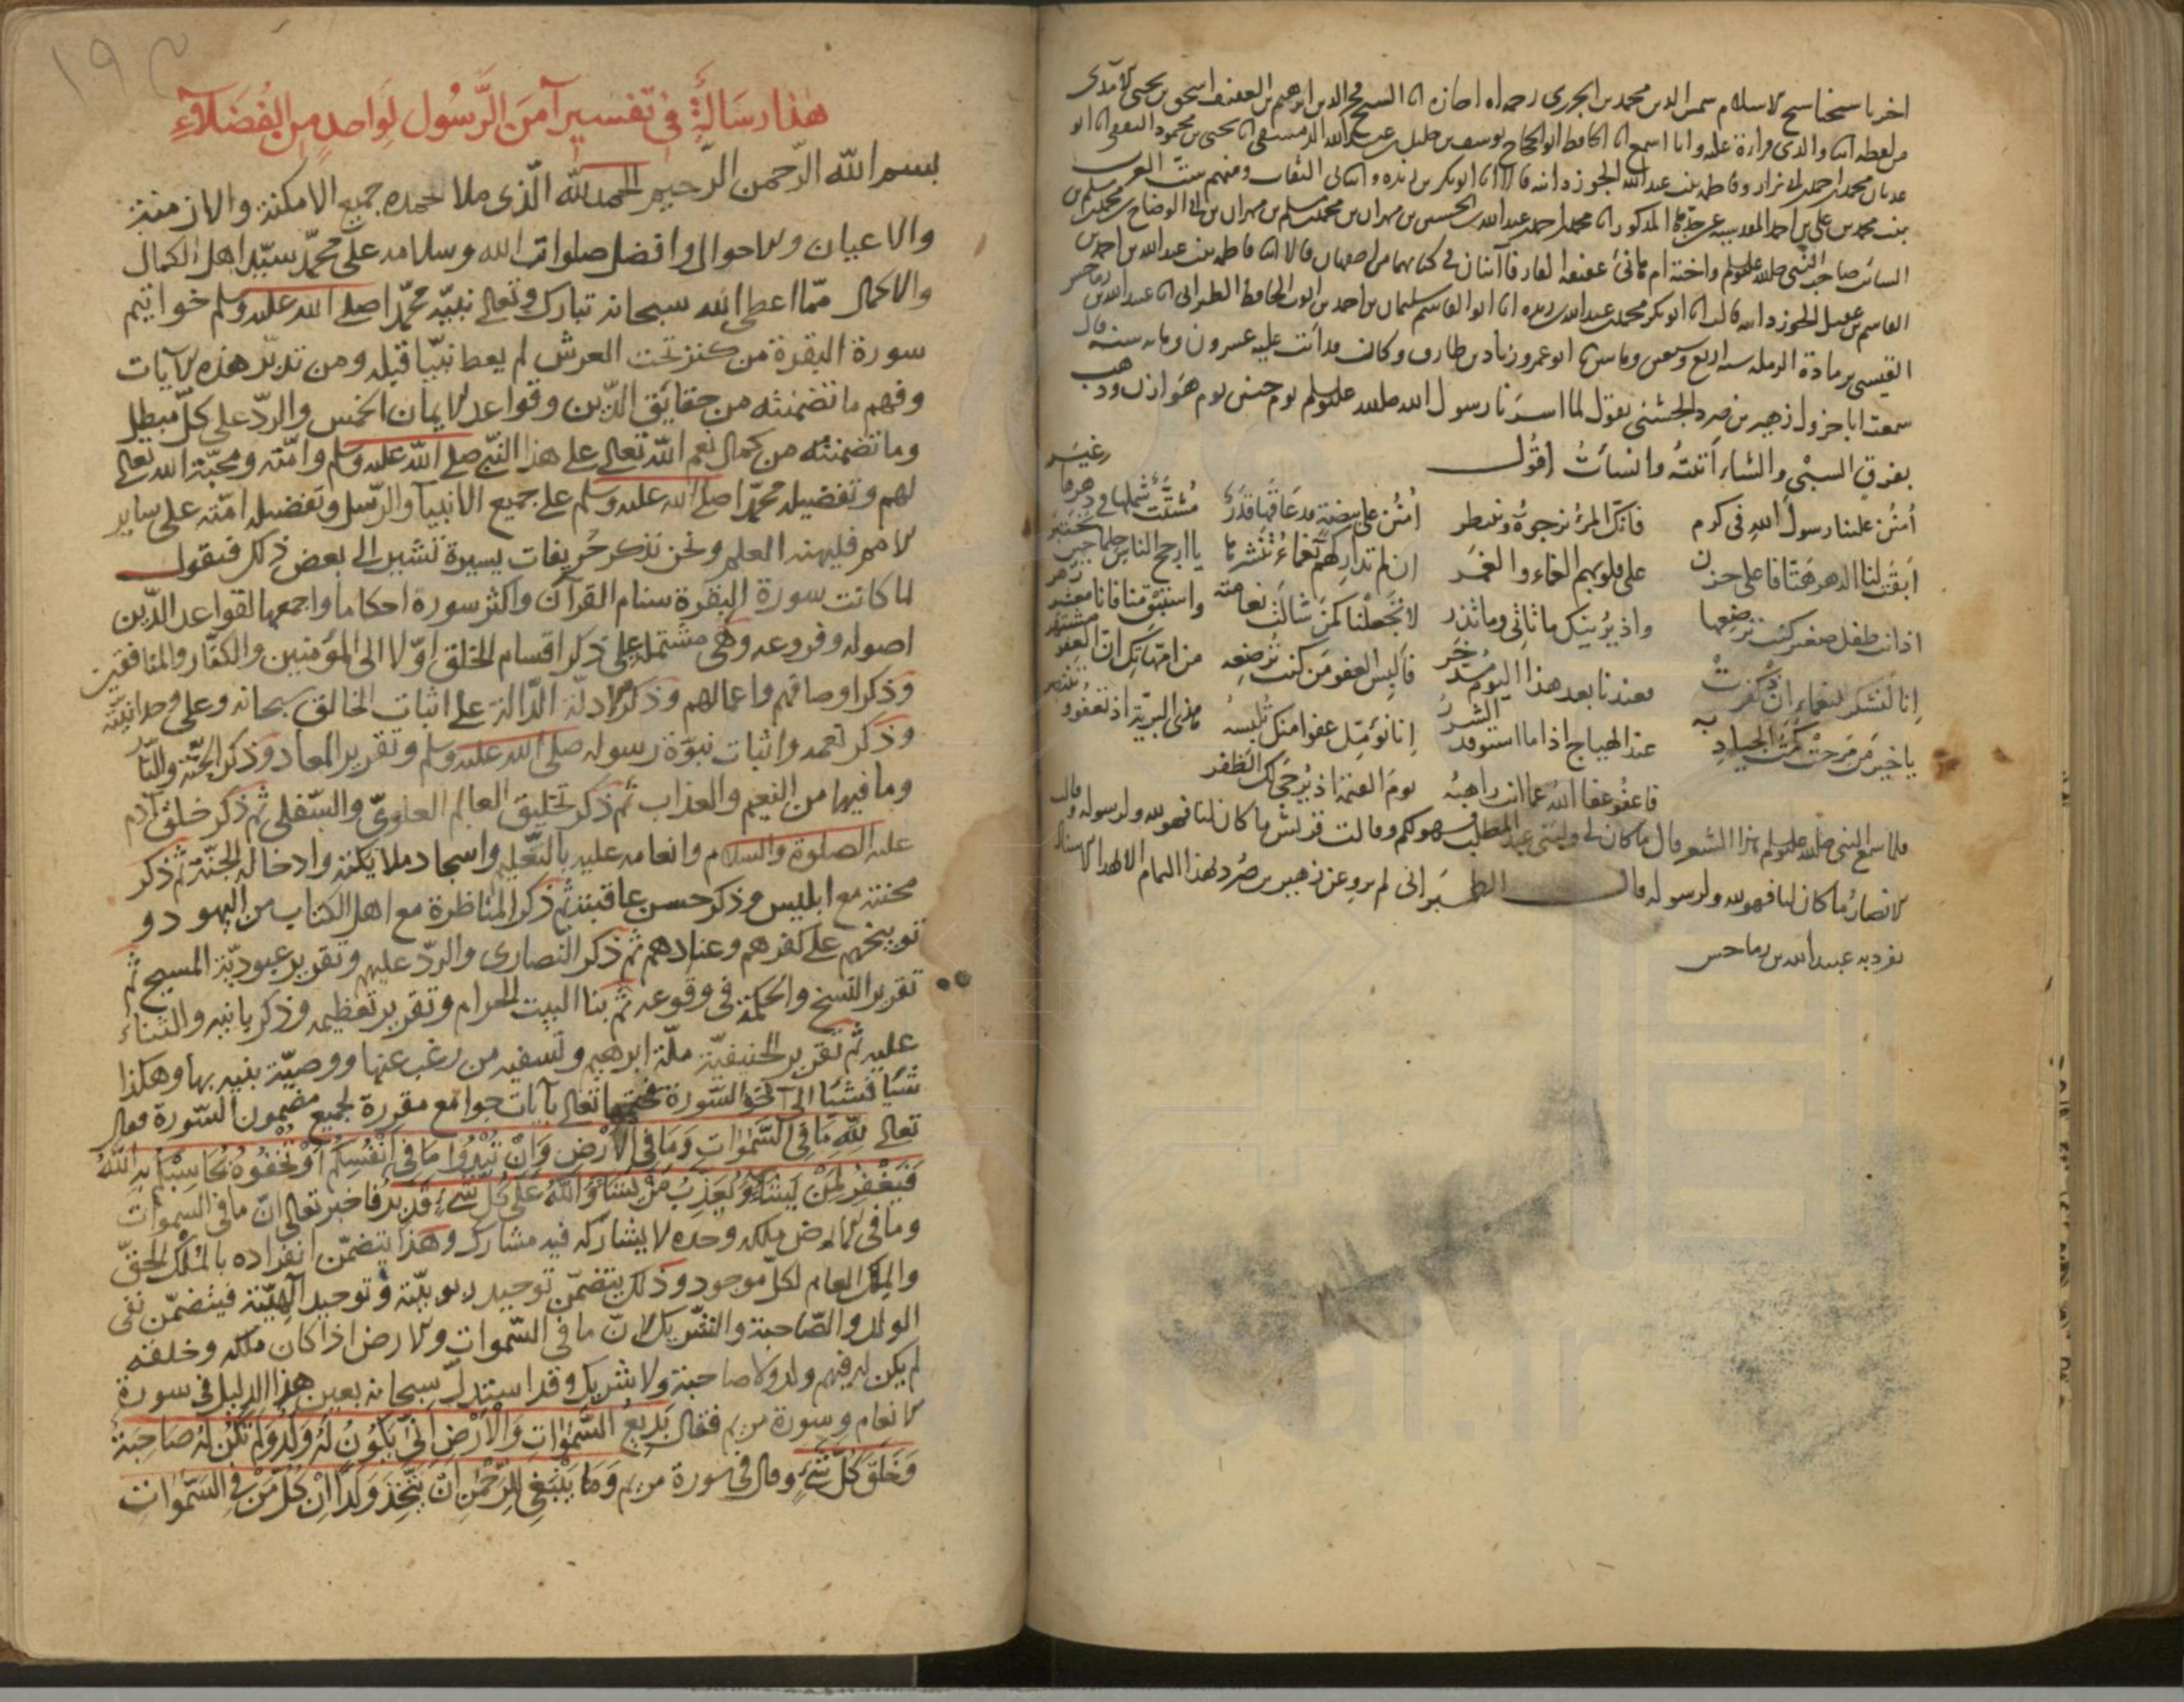 اخبرنا شيخنا شيخ الاسلام شمس الدين محمد بن الجزري رحمه الله اجازة انا الشيخ فخر الدين ابرهيم بن العفيف اسحق بن يحيى الآمدي
من لفظه انا والدي قراءة عليه وانا اسمع انا الحافظ ابو الحجاج يوسف بن خليل بن عبد الله الدمشقي انا يحيى بن محمود الثقفي انا ابو
عدنان محمد بن احمد بن ابي نزار وفاطمة بنت عبد الله الجوزدانية قالا انا ابو بكر بن ريذه وانبأني الثقات ومنهم ست العرب
بنت محمد بن علي بن احمد المقدسية عن جدها المذكور انا محمد بن احمد بن عبد الله بن الحسين بن مهران بن محمد بن مسلم بن مهران بن ابي الوضاح بن محمد بن مسلم بن
السائب صاحب النبي صلى الله عليه وسلم واخته ام هانئ عفيفة الفارفانيان في كتابهما من اصفهان قالا انا فاطمة بنت عبد الله بن احمد بن
القاسم بن عقيل الجوزدانيه قالت انا ابو بكر محمد بن عبد الله بن ريذه انا ابو القاسم سليمان بن احمد بن ايوب الحافظ الطبراني انا عبيد الله بن رماحس
القيسي برمادة الرملة سنة اربع وسبعين ومائتين انا ابو عمرو زياد بن طارق وكان قد اتت عليه عشرون ومائة سنة قال
سمعت ابا جرول زهير بن صرد الجشمي يقول لما اسرنا رسول الله صلى الله عليه وسلم يوم حنين يوم هوازن وذهب
يفرق السبي والشاء أتيته وانشأت اقول
امنن علينا رسول الله في كرم فانك المرء نرجوه وننتظر امنن على بيضة قد عاقها قدر مشتت شملها في دهرها غير
أبقت لنا الدهر هتافا على حزن على قلوبهم الغماء والغمر ان لم تداركهم نعماء تنشرها يا ارجح الناس حلما حين يختبر
اذ انت طفل صغير كنت ترضعها واذ يزينك ما تأتي وما تذر لا تجعلنا كمن شالت نعامته واستبق منا فانا معشر زهر
إنا لنشكر للنعماء ان كفرت وعندنا بعد هذا اليوم مدخر فألبس العفو من كنت ترضعه من امهاتك ان العفو مشتهر
يا خير من مرحت كمت الجياد به عند الهياج اذا ما استوقد الشرر إنا نؤمل عفوا منك تلبسه هذي البرية اذ تعفو وتنتصر
فاعفو عفا الله عما انت راهبه يوم القيمة اذ يهدى لك الظفر
فلما سمع النبي صلى الله عليه وسلم هذا الشعر قال ما كان لي ولبني عبد المطلب فهو لكم وقالت قريش ما كان لنا فهو لله ولرسوله وقالت
الانصار ما كان لنا فهو لله ولرسوله قال الطبراني لم يرو عن زهير بن صرد لهذا التمام الا بهذا الاسناد
تفرد به عبيد الله بن رماحس
١٩٣
هذا رسالة في تفسير آمن الرسول لواحد من الفضلاء
بسم الله الرحمن الرحيم الحمد لله الذي ملا بحمده جميع الامكنة والازمنة
والاعيان والاحوال وافضل صلوات الله وسلامه على محمد سيد اهل الكمال
والاكمال مما اعطى الله سبحانه تبارك وتعالى نبيه محمدا صلى الله عليه وسلم خواتيم
سورة البقرة من كنز تحت العرش لم يعط نبيا قبله ومن تدبر هذه الآيات
وفهم ما تضمنته من حقايق الدين وقواعد الايمان الخمس والرد على كل مبطل
وما تضمنته من كمال نعم الله تعالى على هذا النبي صلى الله عليه وسلم وامته ومحبة الله تعالى
لهم وتفضيله محمدا صلى الله عليه وسلم على جميع الانبيآ والرسل وتفضيله امته على ساير
الامم فليهنه العلم ونحن نذكر حريفات يسيرة تشير الى بعض ذلك فنقول
لما كانت سورة البقرة سنام القرآن واكثر سورة احكاما واجمعها لقواعد الدين
اصوله وفروعه وهي مشتملة على ذكر اقسام الخلق اولا الى المؤمنين والكفار والمنافقين
وذكر اوصافهم واعمالهم وذكر الادلة الدالة على اثبات الخالق سبحانه وعلى وحدانيته
وذكر نعمه واثبات نبوة رسوله صلى الله عليه وسلم وتقرير المعاد وذكر الجنة والنار
وما فيها من النعيم والعذاب ثم ذكر تخليق العالم العلوي والسفلي ثم ذكر خلق آدم
عليه الصلوة والسلام وانعامه عليه بالتعليم واسجاد ملايكته وادخاله الجنة ثم ذكر
محنته مع ابليس وذكر حسن عاقبته ثم ذكر المناظرة مع اهل الكتاب من اليهود و
توبيخهم على كفرهم وعنادهم ثم ذكر النصارى والرد عليهم وتقرير عبودية المسيح ثم
تقرير النسخ والحكمة في وقوعه ثم بنا البيت الحرام وتقرير تعظيمه وذكر بانيه والثناء
عليه ثم تقرير الحنيفية ملة ابرهيم وتسفيه من رغب عنها ووصية بنيه بها وهكذا
شيأ فشيأ الى آخر السورة فختمها تعالى بآيات جوامع مقررة لجميع مضمون السورة فقال
تعالى لله ما في السموات وما في الارض وان تبدوا ما في انفسكم او تخفوه يحاسبكم به الله
فيغفر لمن يشاء ويعذب من يشاء والله على كل شيء قدير فاخبر تعالى ان ما في السموات
وما في الارض ملكه وحده لا يشاركه فيه مشارك وهذا يتضمن انفراده بالملك الحق
والملك العام لكل موجود وذلك يتضمن توحيد ربوبيته وتوحيد آلهيته فيتضمن نفي
الولد والصاحبة والشريك لان ما في السموات والارض اذا كان ملكه وخلقه
لم يكن له فيهم ولد ولا صاحبة ولا شريك وقد استدل سبحانه بعين هذا الدليل في سورة
الانعام وسورة مريم فقال بديع السموات والارض انى يكون له ولد ولم تكن له صاحبة
وخلق كل شيء وقال في سورة مريم وما ينبغي للرحمن ان يتخذ ولدا ان كل من في السموات